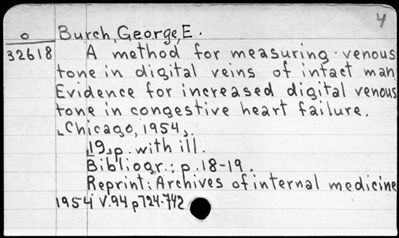 4
o Burch, George, E.
32618 A method for measuring venous
tone in digital veins of intact man
Evidence for increased digital venous
tone in congestive heart failure.
[Chicago, 1954].
[19]p. with ill.
Bibliogr.: p. 18-19.
Reprint: Archives of internal medicine
1954 V.94 p724-742